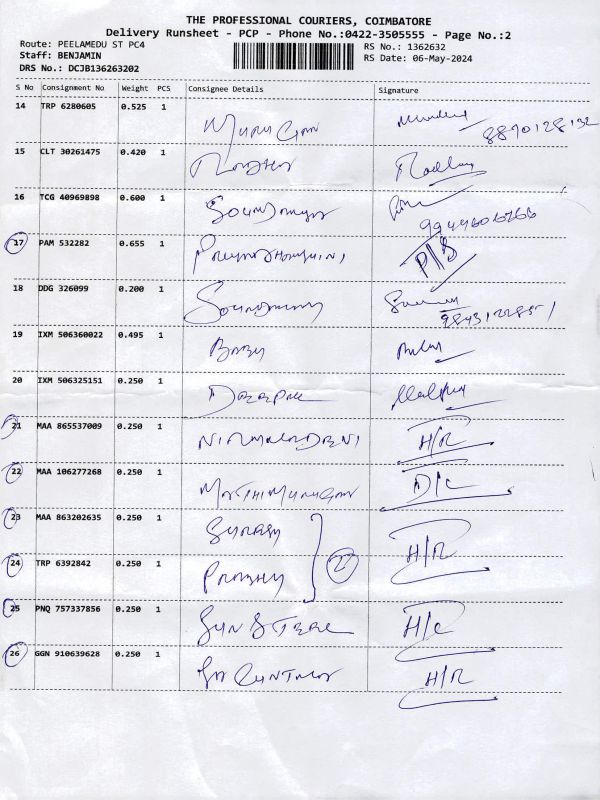 THE PROFESSIONAL COURIERS, COIMBATORE
Delivery Runsheet - PCP - Phone No.:0422-3505555 - Page No.:2
Route: PEELAMEDU ST PC4
RS No.: 1362632
Staff: BENJAMIN
RS Date: 06-May-2024
DRS No.: DCJB136263202
S No Consignment No Weight PCS Consignee Details Signature
14 TRP 6280605 0.525 1 Murugan 8870128132
15 CLT 30261475 0.420 1
16 TCG 40969898 0.600 1
17 PAM 532282 0.655 1 Priyadharshini P/S
18 DDG 326099 0.200 1
19 IXM 506360022 0.495 1 Baby
20 IXM 506325151 0.250 1 Deepak
21 MAA 865537009 0.250 1 NIRMALADEVI H/R
22 MAA 106277268 0.250 1 D/C
23 MAA 863202635 0.250 1 Suresh
24 TRP 6392842 0.250 1 Prabhu H/R
25 PNQ 757337856 0.250 1 Sun Steel H/C
26 GGN 910639628 0.250 1 H/R